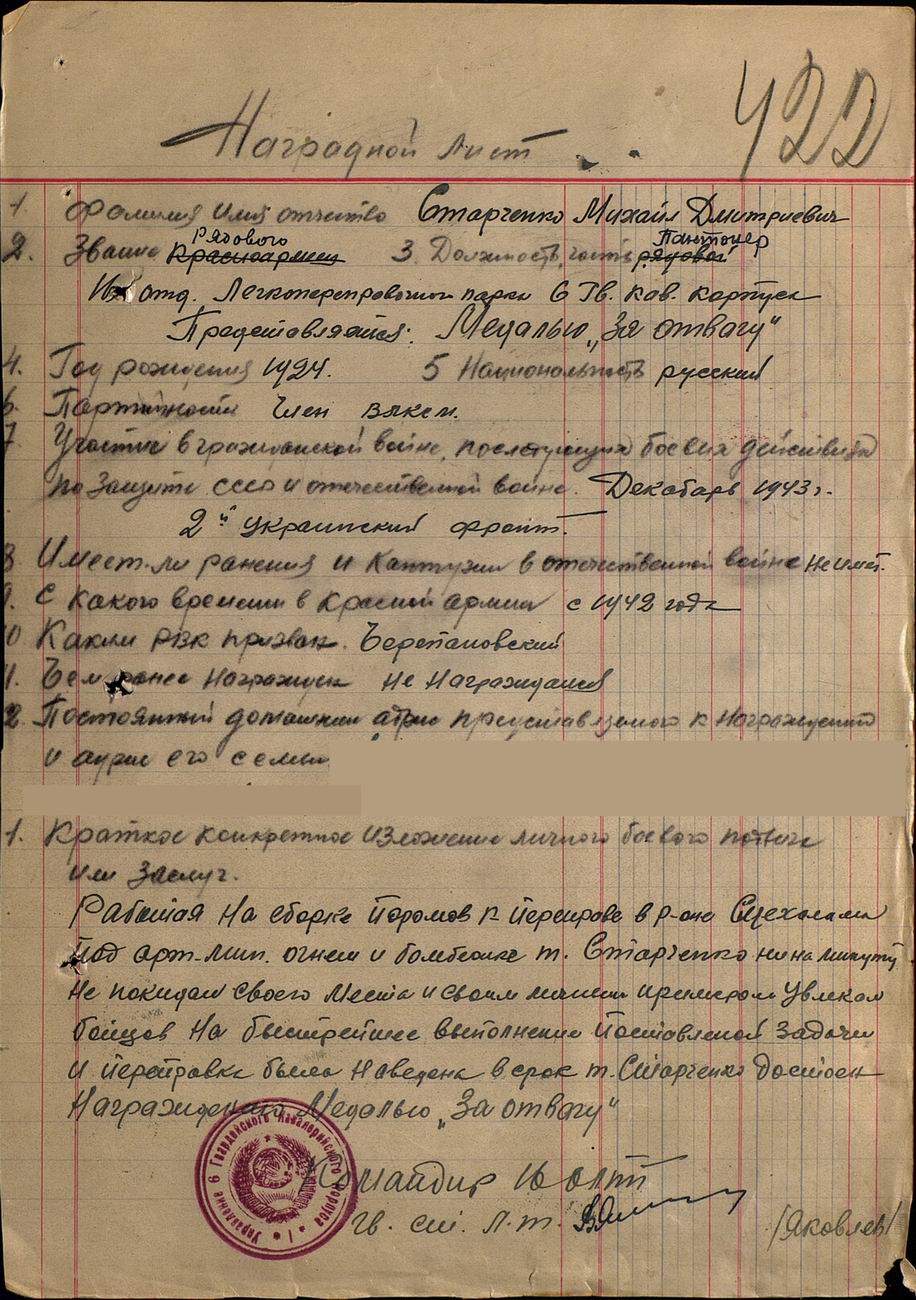 422
Наградной лист
1. Фамилия Имя отчество Старченко Михаил Дмитриевич
Рядового Понтонер
2. Звание Красноармеец 3. Должность, часть рядовой
отд. Легкопереправочного парка 6 Гв. Кав. Корпуса
Представляется: Медалью „За отвагу"
4. Год рождения 1924. 5 Национальность русский
6. Партийность Член влксм.
7 Участие в гражданской войне, последующих боевых действиях
по защите ссср и отечественной войне. Декабрь 1943 г.
2й Украинский фронт.
8 Имеет-ли ранения и Контузии в отечественной войне не имет.
9. С какого времени в красной армии с 1942 года
10 Каким рвк призван. Черепановский
11. Чем ранее Награжден Не Награждался
12. Постоянный домашний адрес представляемого к Награждению
и адрес его семьи
1. Краткое конкретное изложение личного боевого подвига
или заслуг.
Работая На сборке Паромов к Переправе в р-оне
под арт-мин. огнем и бомбежке т. Старченко ни на минуту
не покидал своего Места и своим личным примером Увлекал
бойцов На быстрейшее выполнение Поставленой Задачи
и Переправа была Наведена в срок т. Старченко Достоен
Награждения Медалью „За отвагу"
Командир
Гв. ст. л-т. /Яковлев/
Управление 6 Гвардейского Кавалерийского Корпуса